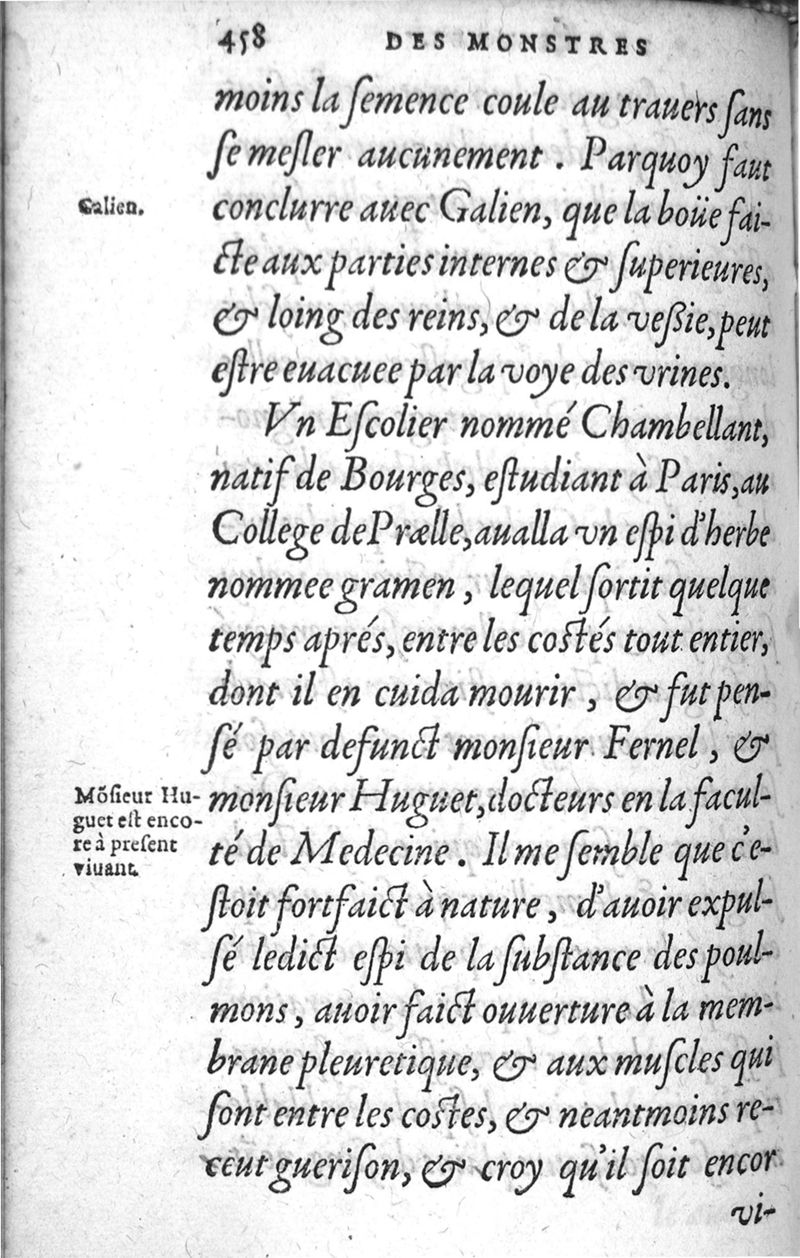 458 DES MONSTRES
moins la ſemence coule au trauers ſans
ſe meſler aucunement . Parquoy faut
Galien.
conclurre auec Galien, que la boüe fai-
cte aux parties internes & ſuperieures,
& loing des reins, & de la veßie, peut
eſtre euacuee par la voye des vrines.
Vn Eſcolier nommé Chambellant,
natif de Bourges, eſtudiant à Paris, au
College de Prælle, aualla vn eſpi d'herbe
nommee gramen , lequel ſortit quelque
temps aprés, entre les coſtés tout entier,
dont il en cuida mourir , & fut pen-
ſé par defunct monſieur Fernel , &
Mõſieur Hu-
guet eſt enco-
re à preſent
viuant.
monſieur Huguet, docteurs en la facul-
té de Medecine . Il me ſemble que c'e-
ſtoit fort faict à nature , d'auoir expul-
ſé ledict eſpi de la ſubſtance des poul-
mons , auoir faict ouuerture à la mem-
brane pleuretique, & aux muſcles qui
ſont entre les coſtes, & neantmoins re-
ceut gueriſon, & croy qu'il ſoit encor
vi-